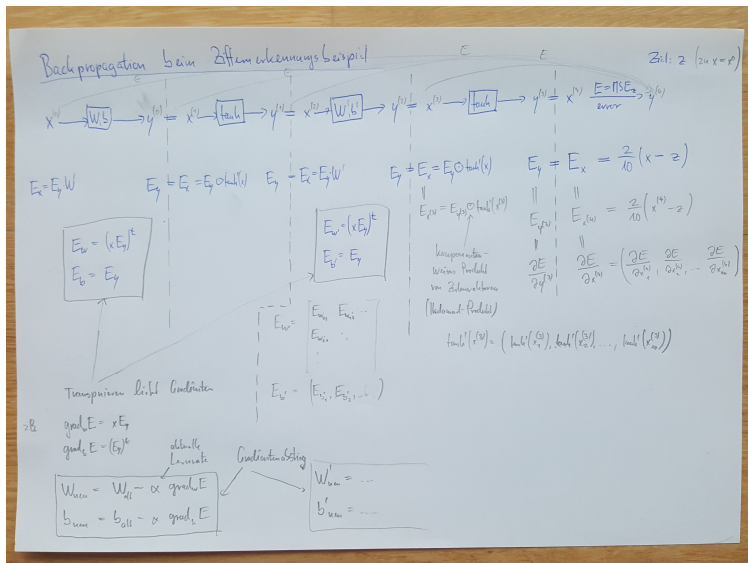 Backpropagation beim Ziffernerkennungsbeispiel
Ziel: z (zu x = x⁽⁰⁾)
E E E E
x⁽⁰⁾ → W,b → y⁽⁰⁾ = x⁽¹⁾ → tanh → y⁽¹⁾ = x⁽²⁾ → W',b' → y⁽²⁾ = x⁽³⁾ → tanh → y⁽³⁾ = x⁽⁴⁾ E = MSE_z error → y⁽⁴⁾
E_x = E_y·W E_y = E_x = E_y ⊙ tanh'(x) E_y = E_x = E_y·W' E_y = E_x = E_y ⊙ tanh'(x) E_y = E_x = 2/10 (x − z)
E_x⁽³⁾ = E_y⁽³⁾ ⊙ tanh'(x⁽³⁾) E_y⁽³⁾ E_x⁽⁴⁾ = 2/10 (x⁽⁴⁾ − z)
∂E/∂y⁽³⁾ ∂E/∂x⁽⁴⁾ = (∂E/∂x₁⁽⁴⁾, ∂E/∂x₂⁽⁴⁾, ... ∂E/∂x₁₀⁽⁴⁾)
E_W = (x E_y)ᵗ
E_b = E_y
E_W' = (x E_y)ᵗ
E_b' = E_y
komponenten-
weises Produkt
von Zeilenvektoren
(Hadamard-Produkt)
tanh'(x⁽³⁾) = (tanh'(x₁⁽³⁾), tanh'(x₂⁽³⁾), ..., tanh'(x₁₀⁽³⁾))
E_W' = [E_w'₁₁ E_w'₁₂ ...
E_w'₂₁ ⋱ ]
E_b' = (E_b'₁, E_b'₂, ... )
Transponieren liefert Gradienten
z.B. grad_W E = x E_y
grad_b E = (E_y)ᵗ
aktuelle
Lernrate
Gradientenabstieg
W_neu = W_alt − α grad_W E
b_neu = b_alt − α grad_b E
W'_neu = ....
b'_neu = ....